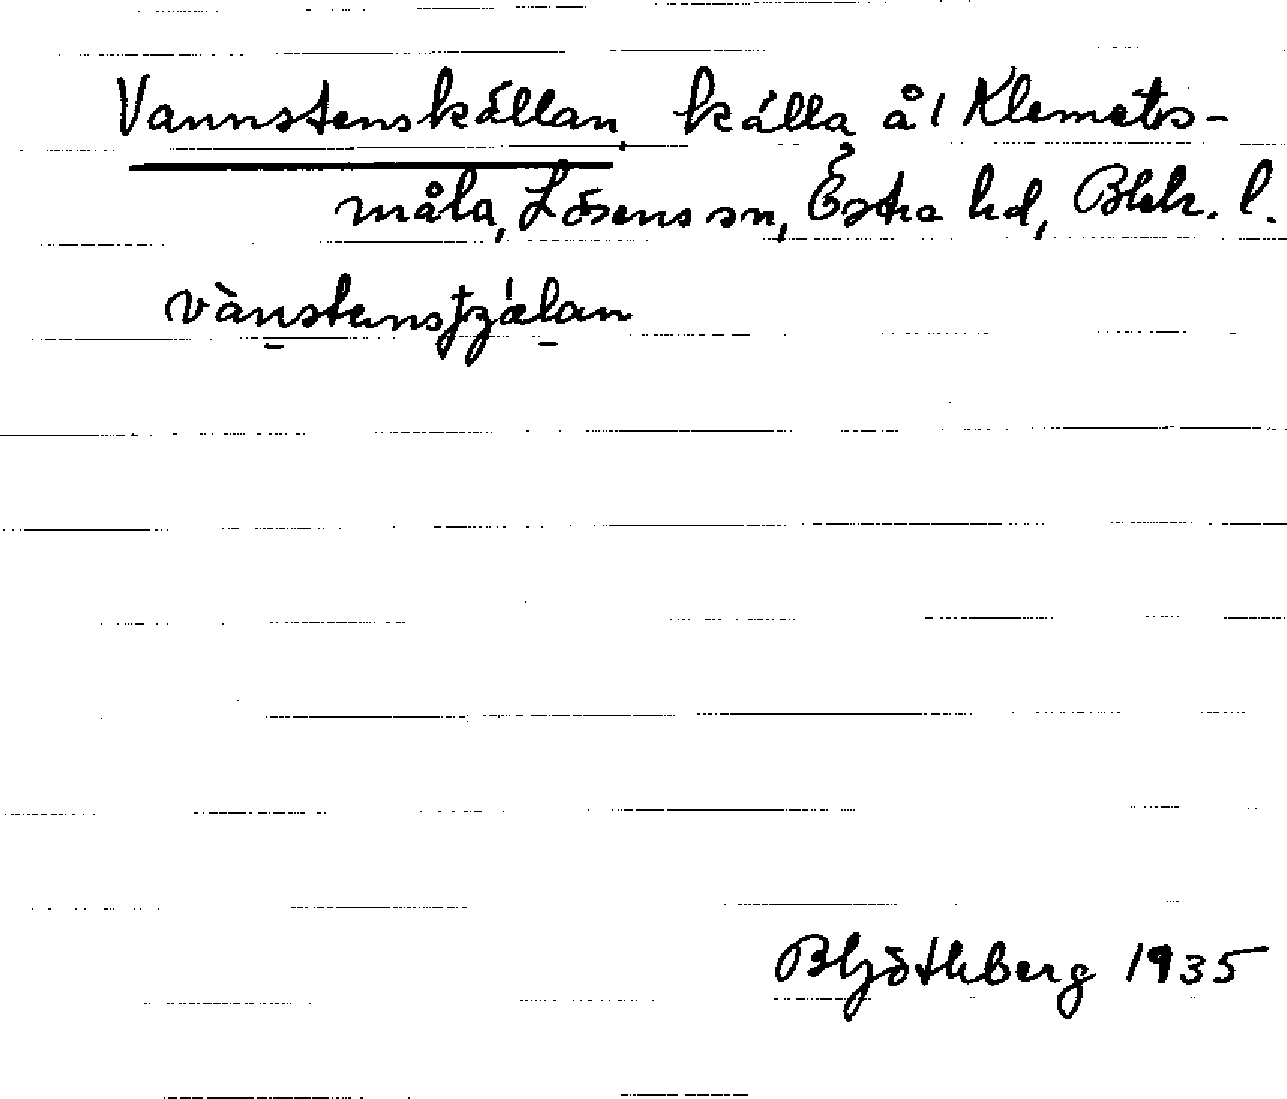 Vannstenskällan, källa å Klemets-
måla, Lösens sn, Östra hd, Blek. l.
vànstensʈʂǽlan
B Hjöthberg 1935